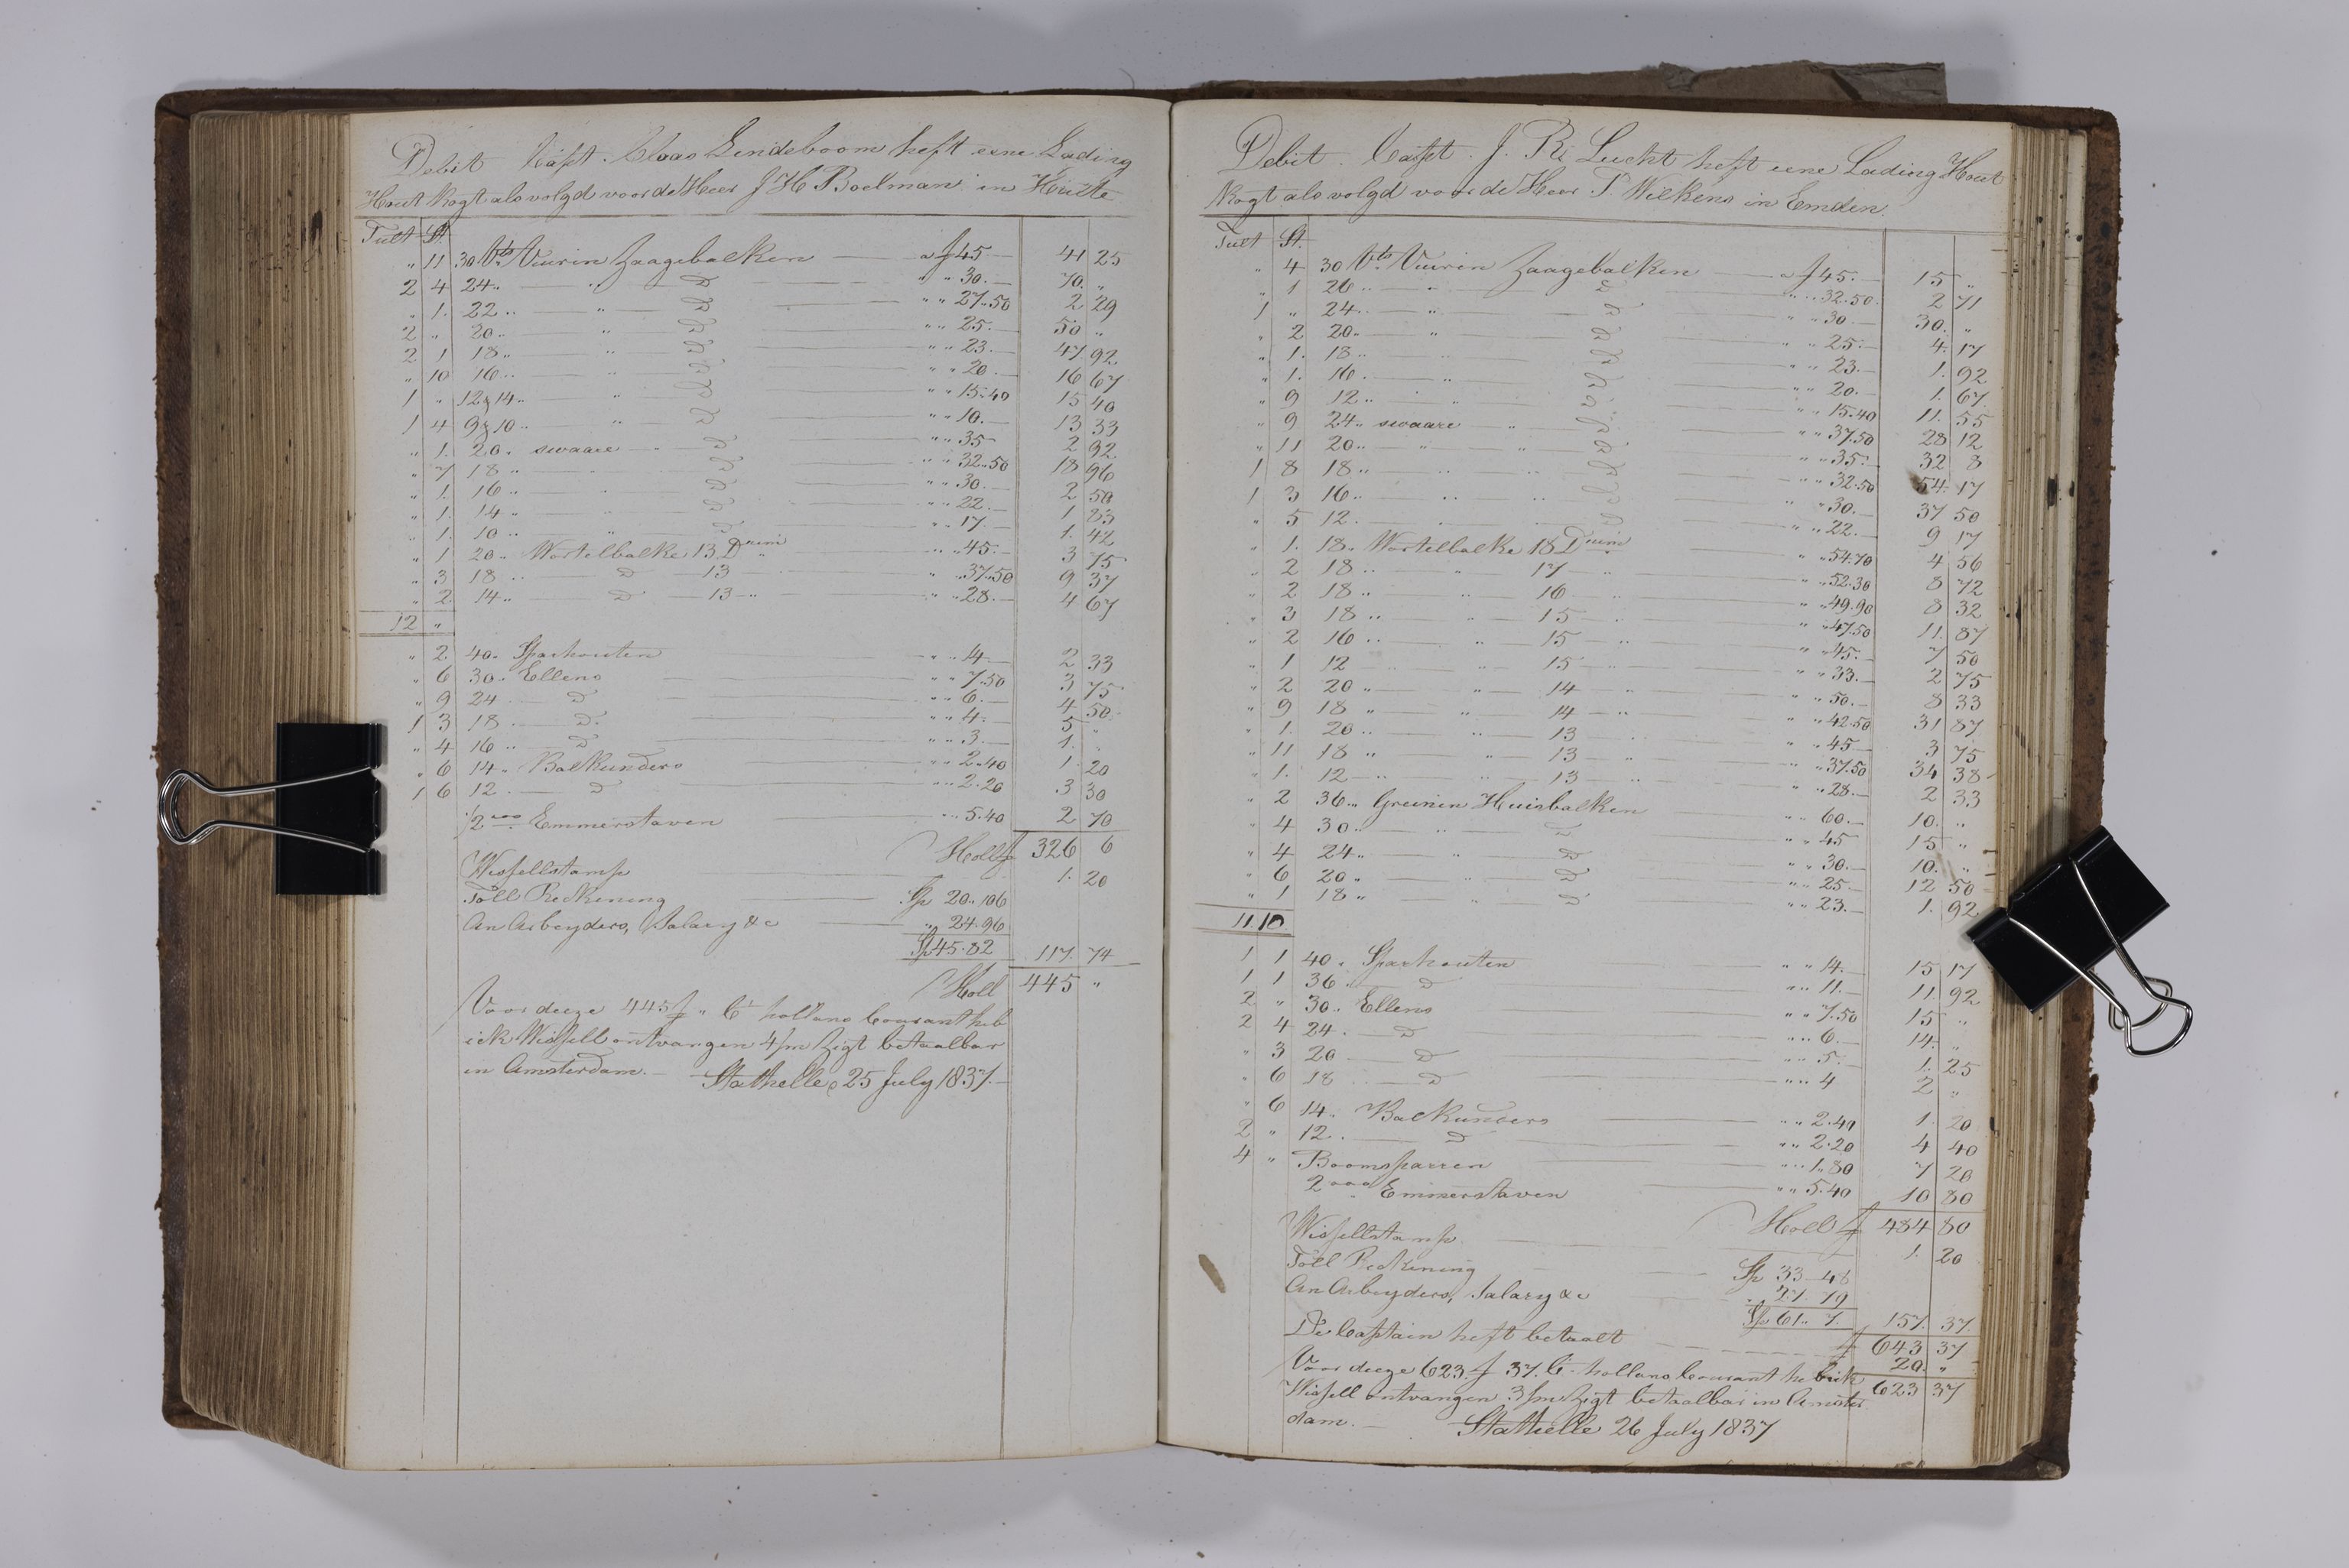 Debit Capt. Claas Lindeboom heft eene Lading
Hout Kogt als volgd voor de Heer J H Boelman in
Tult St.
" 11 30 Vts Vuuren Zaagebalken " f 45 — 41 25
2 4 24 " — " — D — " " 30. — 70. "
" 1. 22 " — " — D — " " 27.50 2 29
2 " 20 " — " — D — " " 25. — 50 "
2 1 18 " — " — D — " " 23. — 47 92
" 10 16 " — " — D — " " 20. — 16 67
1 " 12 & 14 " — " — D — " " 15.40 15 40
1 4 9 & 10 " — " — D — " " 10. — 13 33
" 1. 20 " swaare — " — D — " " 35 — 2 92
" 7 18 " — " — D — " " 32.50 18 96
" 1. 16 " — " — D — " " 30. — 2 50
" 1. 14 " — " — D — " " 22. — 1 83
" 1. 10 " — " — D — " " 17. — 1. 42
" 1 20 " Wortelbalke 13 Duim " " 45. — 3 75
" 3 18 " — D — 13 — " " " 37.50 9 37
" 2 14 " — D — 13 — " " " 28. — 4 67
12 "
" 2 40 " Sparhouten — " " 4 — 2 33
" 6 30 " Ellens — " " 7.50 3 75
" 9 24 — D — " " 6. — 4 50
1 3 18 " — D. — " " 4. — 5 "
" 4 16 " — D — " " 3. — 1. "
" 6 14 " Balkunders — " " 2.40 1. 20
1 6 12 " — D — " " 2.20 3 30
1/2 ooo Emmerstaven — " " 5.40 2 70
Holl f 326 6
Wissellstamp — 1. 20
Toll Reckening — Sp 20 " 106
An Arbeyders, Salary &c — " 24.96
Sp 45.82 117. 74
Holl 445 "
Voor deeze 445 f " Ct hollans Courant heb
ick Wissell ontvangen 4/m Zigt betaalbar
in Amsterdam. — Stathelle, 25 July 1837. —
Debit. Capt. J. R. Lucht heft eene Lading Hout
Kogt als volgd voor de Heer T. Wilkens in Emden.
Tult St.
" 4 30 Vts Vuuren Zaagebalken " f 45. — 15 "
" 1 26 " — " — D — " " 32.50. 2 71
1 " 24 " — " — D — " " 30. — 30. "
" 2 20 " — " — D — " " 25. — 4. 17
" 1. 18 " — " — D — " " 23. — 1. 92
" 1. 16 " — " — D — " " 20. — 1. 67
" 9 12 " — " — D — " " 15.40 11. 55
" 9 24 " swaare — " — D — " " 37.50 28 12
" 11 20 " — " — D — " " 35. — 32 8
1 8 18 " — " — D — " " 32.50 54. 17
1 3 16 " — " — D — " " 30. — 37 50
" 5 12. — " — D — " " 22. — 9 17
" 1. 18 " Wortelbalke 18 Duim " " 54.70 4 56
" 2 18 " — " — 17 — " " " 52.30 8 72
" 2 18 " — " — 16 — " " " 49.90 8 32
" 3 18 " — " — 15 — " " " 47.50 11. 87
" 2 16 " — " — 15 — " " " 45. — 7 50
" 1 12 " — " — 15 — " " " 33. — 2 75
" 2 20 " — " — 14 — " " " 50. — 8 33
" 9 18 " — " — 14 — " " " 42.50 31 87
" 1. 20 " — " — 13 — " " " 45 — 3 75
" 11 18 " — " — 13 — " " " 37.50 34 38
" 1. 12 " — " — 13 — " " " 28. — 2 33
" 2 36 " Greinen Huisbalken " " 60. — 10. "
" 4 30 " — " — D — " " 45 15 "
" 4 24 " — " — D — " " 30. — 10. "
" 6 20 " — " — D — " " 25. — 12 50
" 1 18 " — " — D — " " 23. — 1. 92
11. 10
1 1 40 " Sparhouten — " " 14. — 15 17
1 1 36 " — D — " " 11. — 11. 92
2 " 30 " Ellens — " " 7.50 15 "
2 4 24 " — D — " " 6. — 14. "
" 3 20 — D — " " 5. — 1. 25
" 6 18 " — D — " " 4 2 "
" 6 14 " Balkunders — " " 2.40 1. 20
2 " 12 " — D — " " 2.20 4 40
4 " Boomsparren — " " 1.80 7 20
2 ooo Emmerstaven — " " 5.40 10 80
Holl f 484 80
Wissellstamp — 1. 20
Toll Reckening — Sp 33 — 48
An Arbeyders, Salary &c — " 27. 79
Sp 61. 7. 157. 37.
f 643 37
De Captain heft betaalt — 20. "
623 37
Voor deeze 623 f 37. Ct hollans Courant heb ick
Wissell ontvangen 3/m Zigt betaalbar in Amster
dam. — Stathelle 26 July 1837